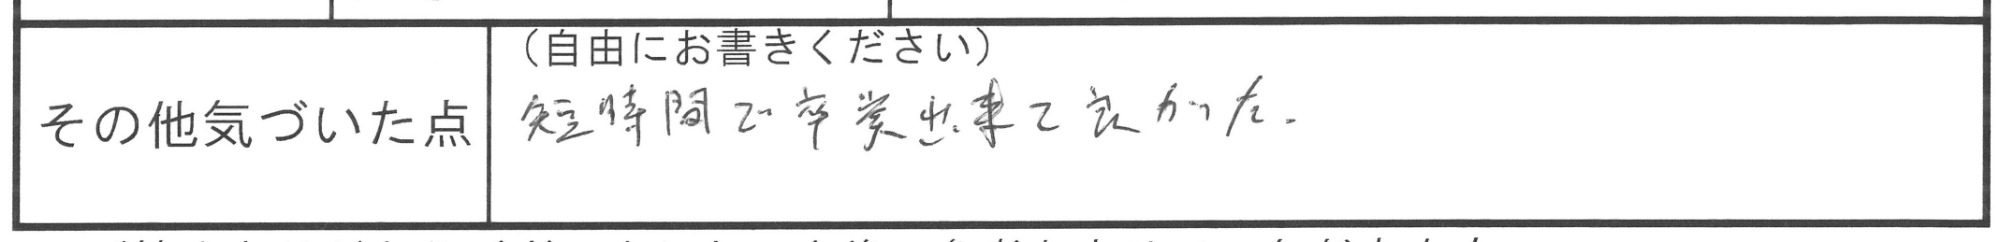 (自由にお書きください)
その他気づいた点
短時間で卒業出来て良かった.